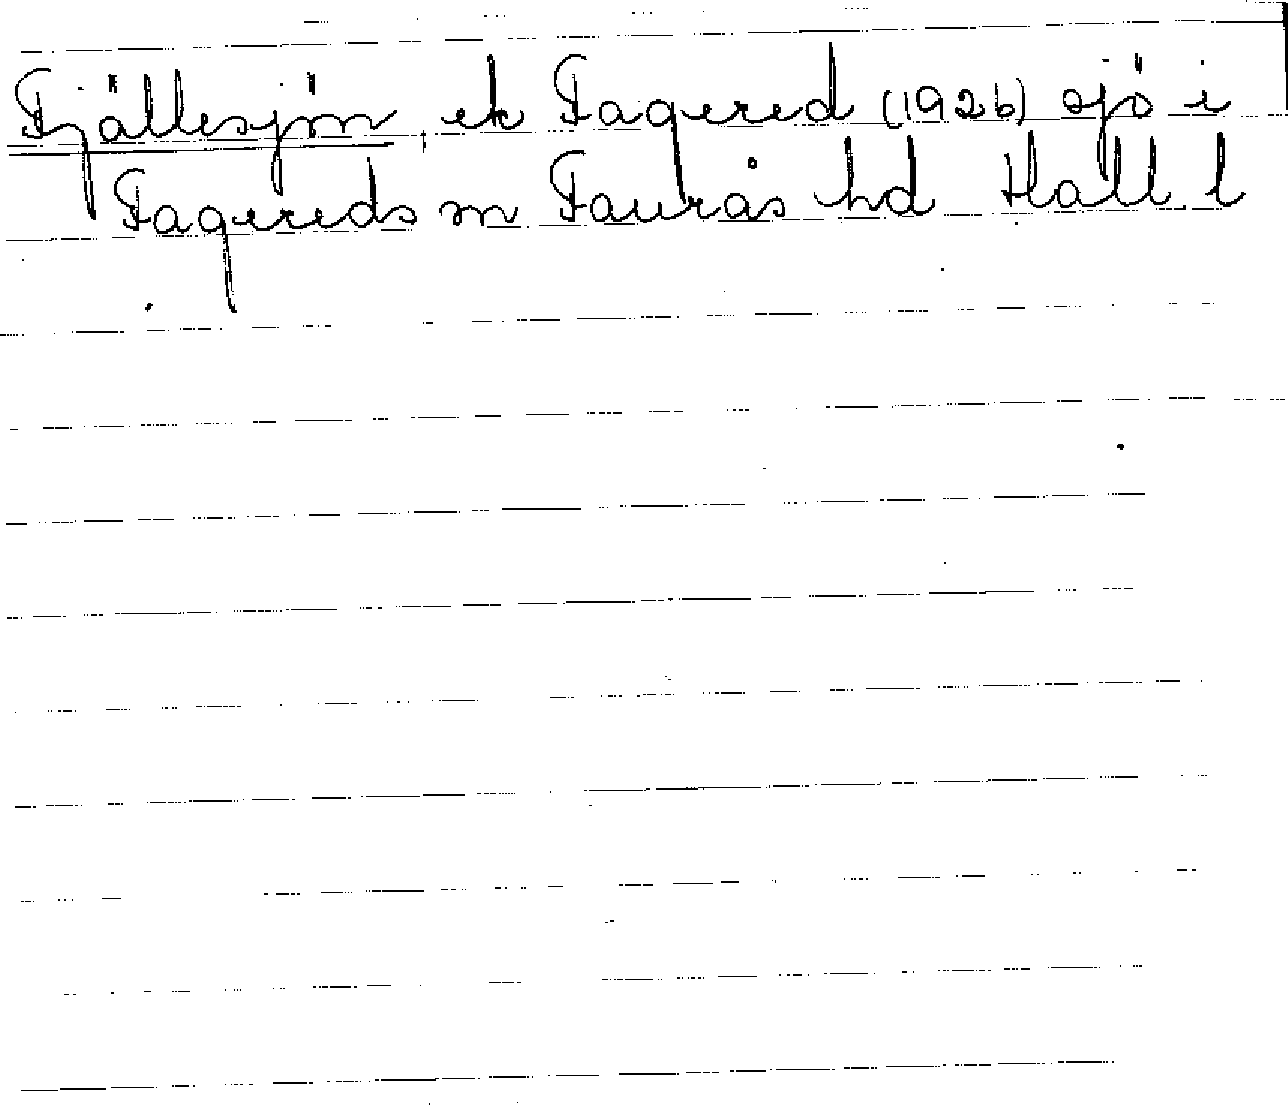 Fjällesjön, ek Fagered (1926) sjö i
Fagereds sn Faurås hd Hall l